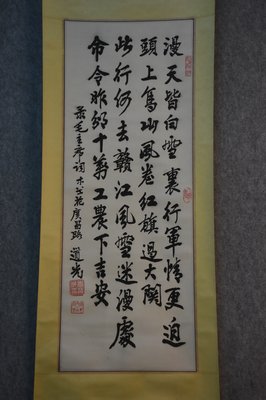 漫天皆白雪裏行軍情更迫
頭上高山風卷紅旗過大關
此行何去贛江風雪迷漫處
命令昨頒十萬工農下吉安
毛主席詞木蘭花廣昌路